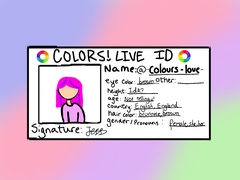 COLORS! LIVE ID
Name: @ Colours-love
eye color: brown other:
height: Idk?
age: Not telling!
country: English, England
hair color: brunnete, brown
gender/Pronouns: female, she/her
Signature: Jess